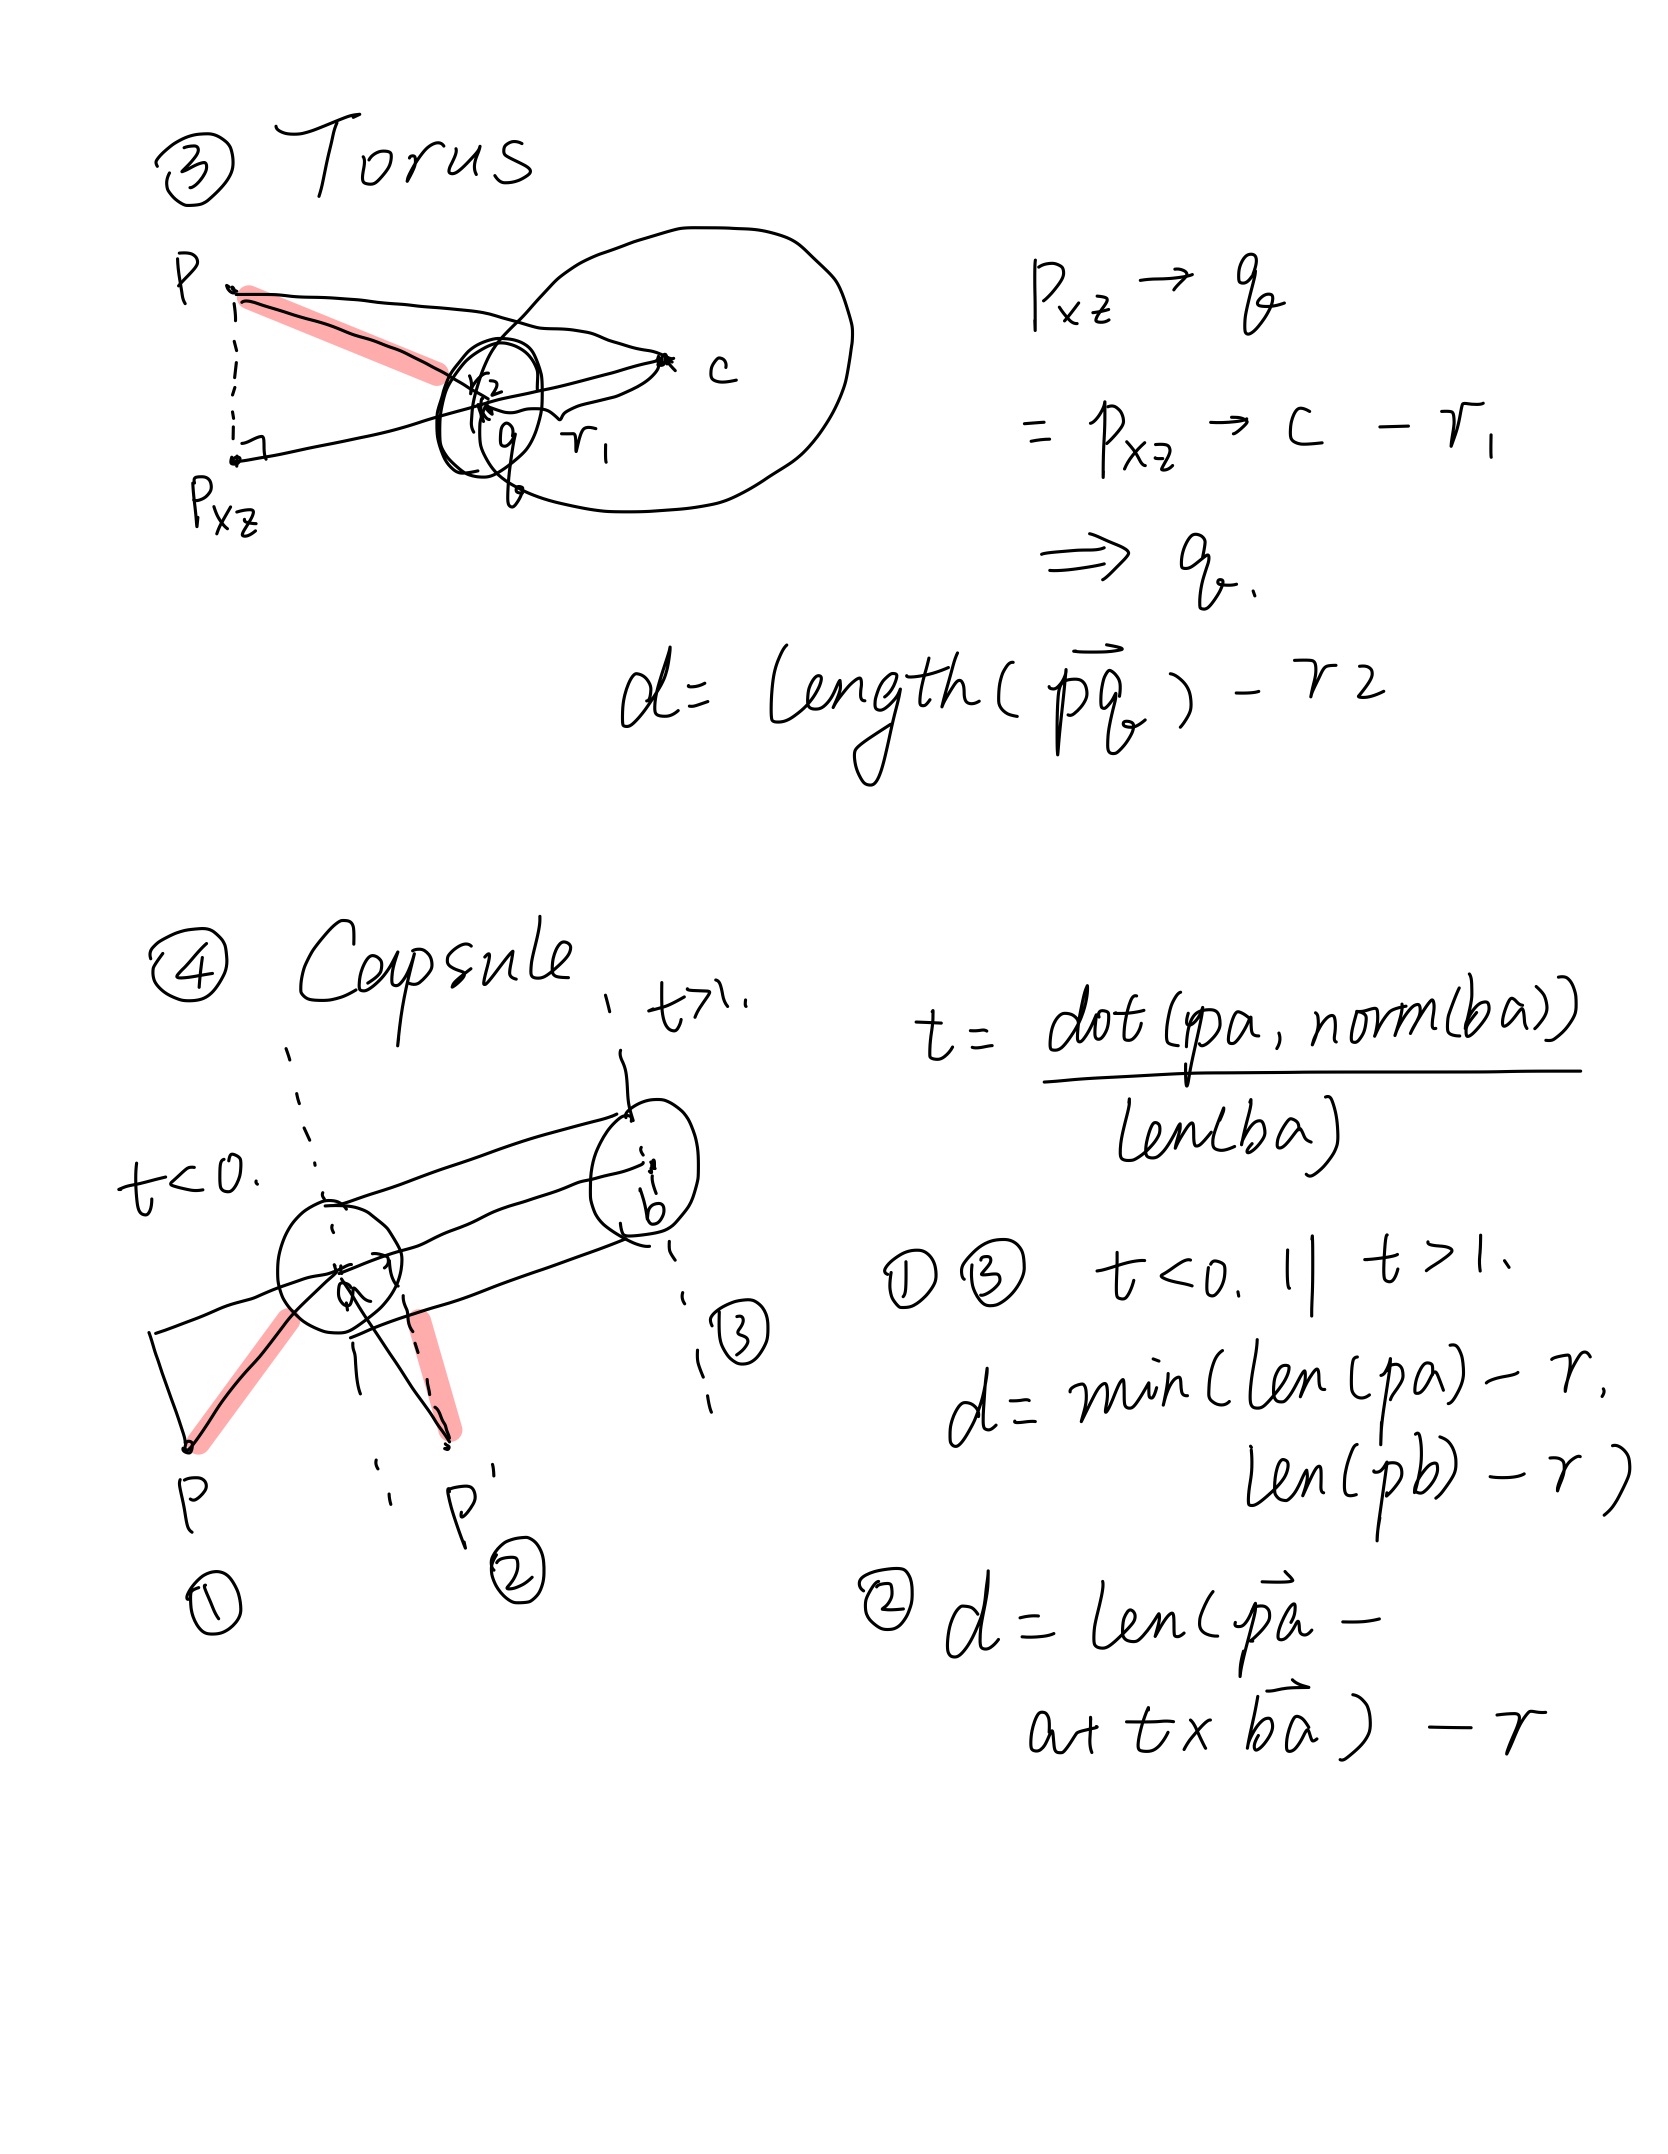 ③ Torus
P
Pxz
r2
q
r1
c
Pxz → q
= Pxz → c - r1
⇒ q.
d = length(pq) - r2
④ Capsule
t<0.
t>1.
a
b
P
①
P'
②
③
t = dot(pa, norm(ba))
len(ba)
① ③ t<0. || t>1.
d = min(len(pa) - r,
len(pb) - r)
② d = len(pa -
a+ t x ba) - r